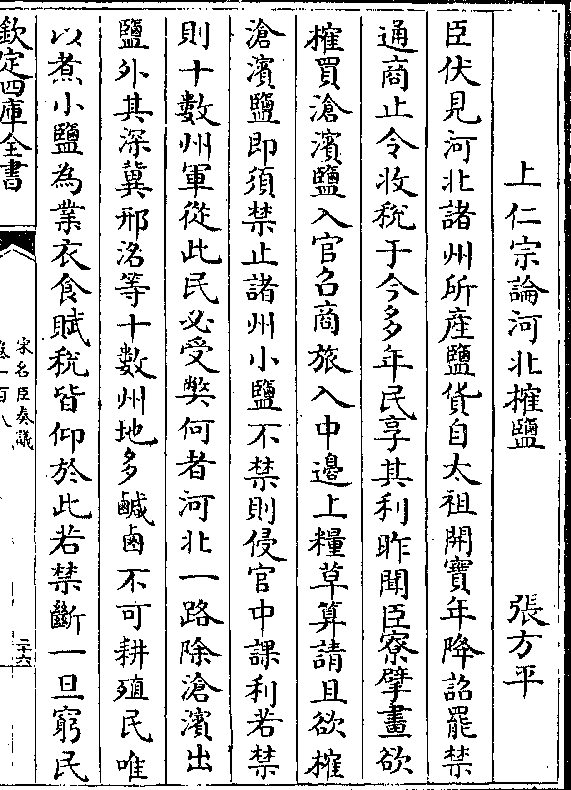 上仁宗論河北㩁鹽　張方平
臣伏見河北諸州所產鹽貨自太祖開寶年降詔罷禁
通商止令收税于今多年民享其利昨聞臣寮擘畫欲
㩁買滄濱鹽入官召商旅入中邊上糧草算請且欲㩁
滄濱鹽即須禁止諸州小鹽不禁則侵官中課利若禁
則十數州軍從此民必受獘何者河北一路除滄濱出
鹽外其深冀邢洺等十數州地多鹹鹵不可耕殖民唯
以煮小鹽為業衣食賦稅皆仰於此若禁斷一旦窮民
欽定四庫全書
宋名臣奏議
卷一百八
二十六